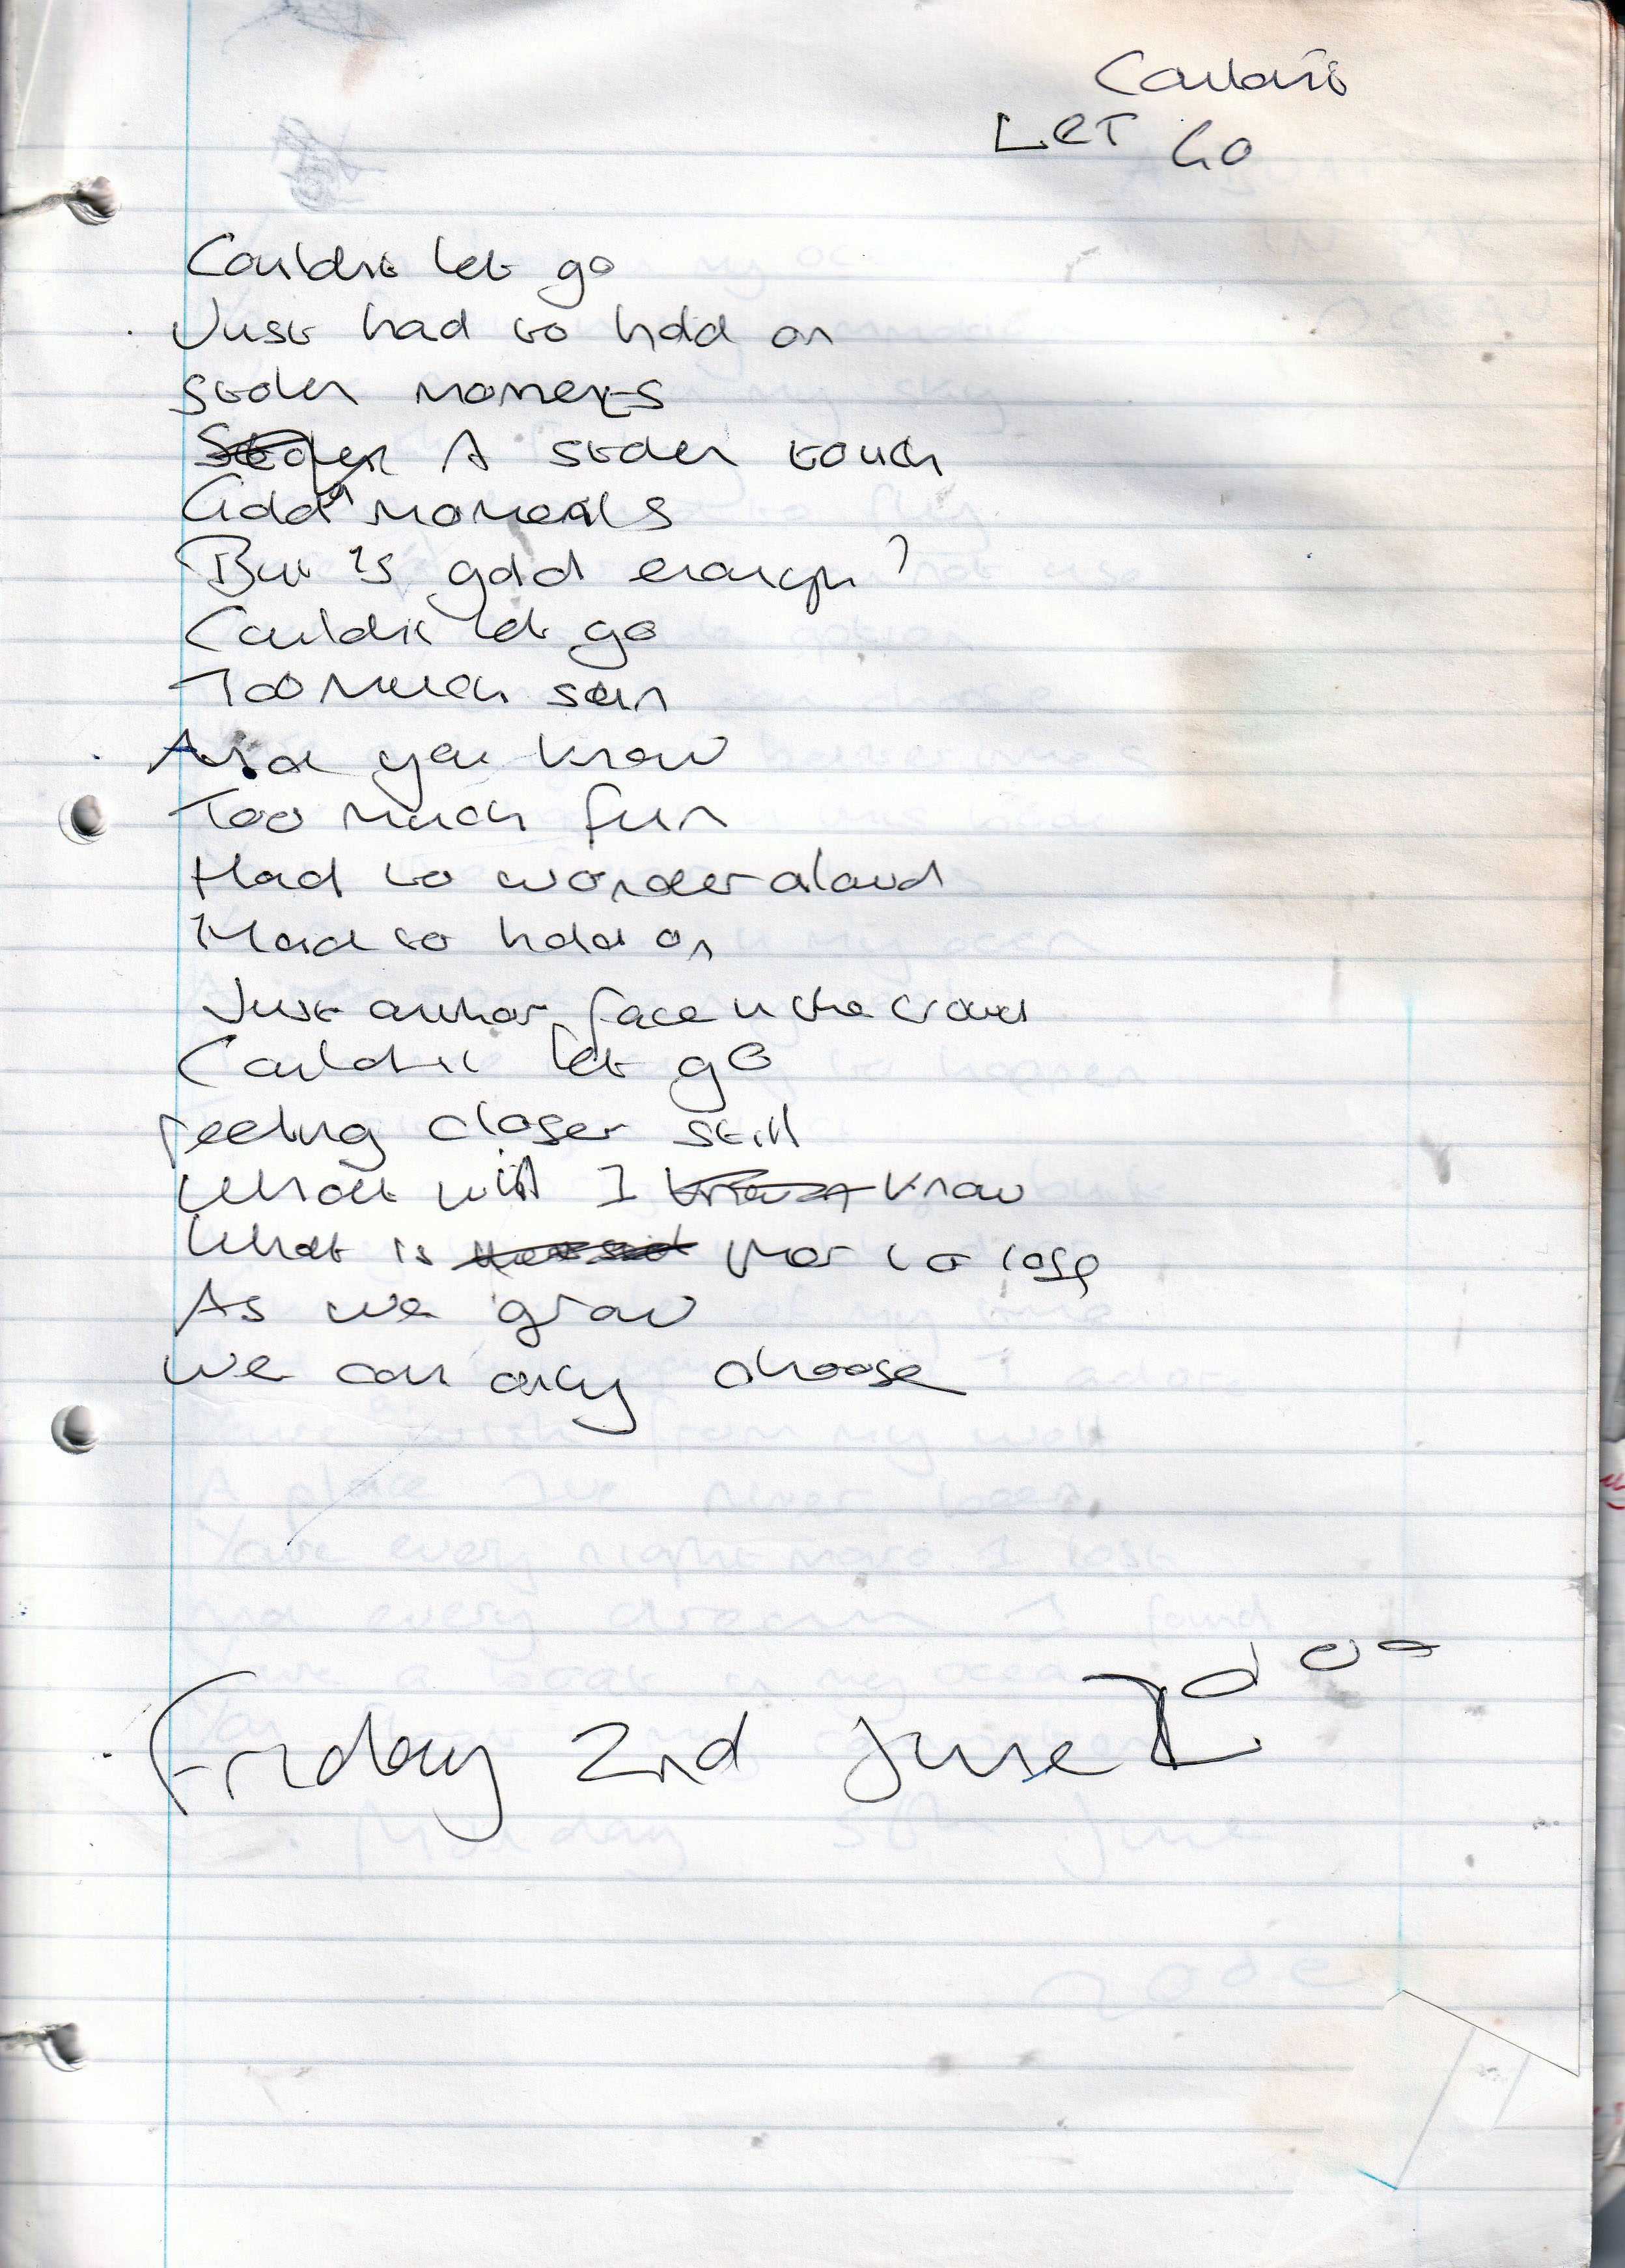 Couldn't
LET GO
Couldn't let go
Just had to hold on
Stolen moments
A stolen touch
Gold moments
But is gold enough?
Couldn't let go
Too much sun
And you know
Too much fun
Had to wonder aloud
Had to hold on
Just another face in the crowd
Couldn't let go
Feeling closer still
What will I know
What is there to lose
As we grow
We can only choose
Friday 2nd June